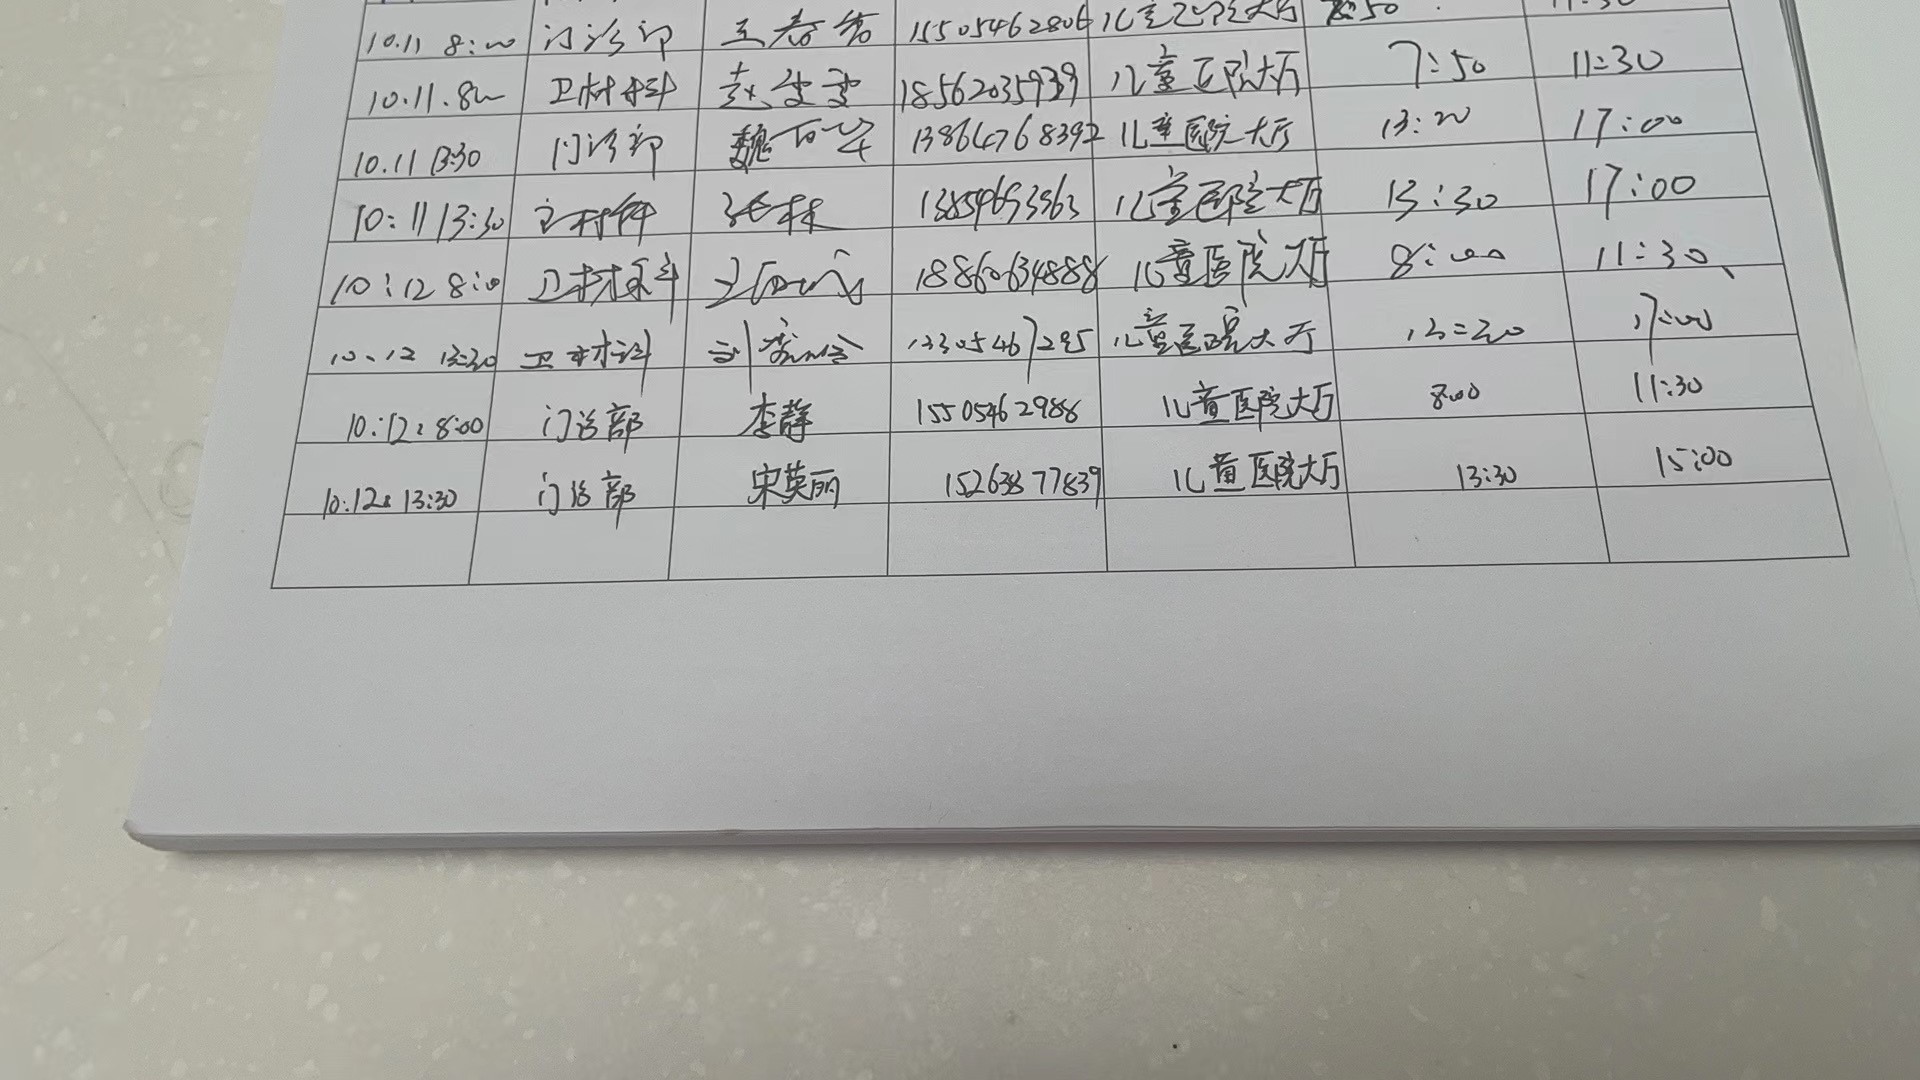 10.11 8:00 门诊部 王春 15505462806 儿童医院大厅 7:50 11:30
10.11.8:00 卫材科 赵雯雯 18562035939 儿童医院大厅 7:50 11:30
10.11 13:30 门诊部 魏 13864768392 儿童医院大厅 13:20 17:00
10:11 13:30 卫材科 张林 儿童医院大厅 13:30 17:00
10:12 8:00 卫材科 18860634888 儿童医院大厅 8:00 11:30
10.12 13:30 卫材科 刘 儿童医院大厅 17:00
10:12:8:00 门诊部 李静 15505462988 儿童医院大厅 8:00 11:30
10:12: 13:30 门诊部 宋英丽 15263877839 儿童医院大厅 13:30 15:00